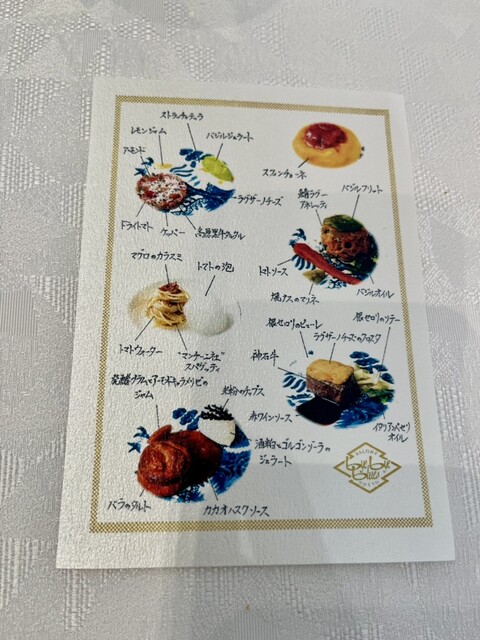 ストラッチャテッラ
レモンジャム
バジルジェラート
アーモンド
ラグザーノチーズ
ドライトマト
ケッパー
スフィンチョーネ
鯖ラグー
アネレッティ
バジルフリット
トマトソース
焼ナスのマリネ
バジルオイル
マグロのカラスミ
トマトの泡
トマトウォーター
"マンチーニ社"
スパゲッティ
根セロリのピューレ
根セロリのソテー
ラグザーノチーズのクロスタ
神石牛
赤ワインソース
イタリアンパセリ
オイル
ジャム
米粉のチップス
酒粕とゴルゴンゾーラの
ジェラート
バラのタルト
カカオハスクソース